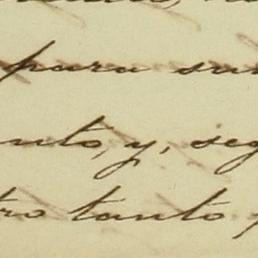 para su
nto, y, seg
tro tanto